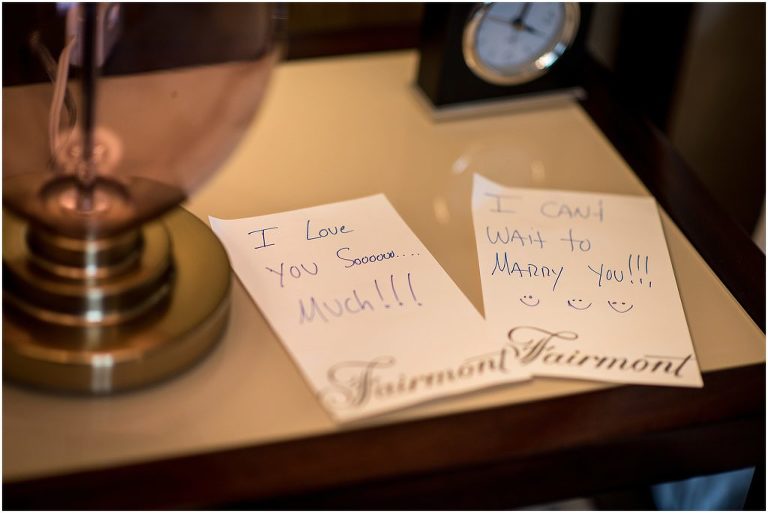 I Love
You Soooooo....
Much!!!
Fairmont
I CAN't
WAit to
MARRY YOU!!!
Fairmont